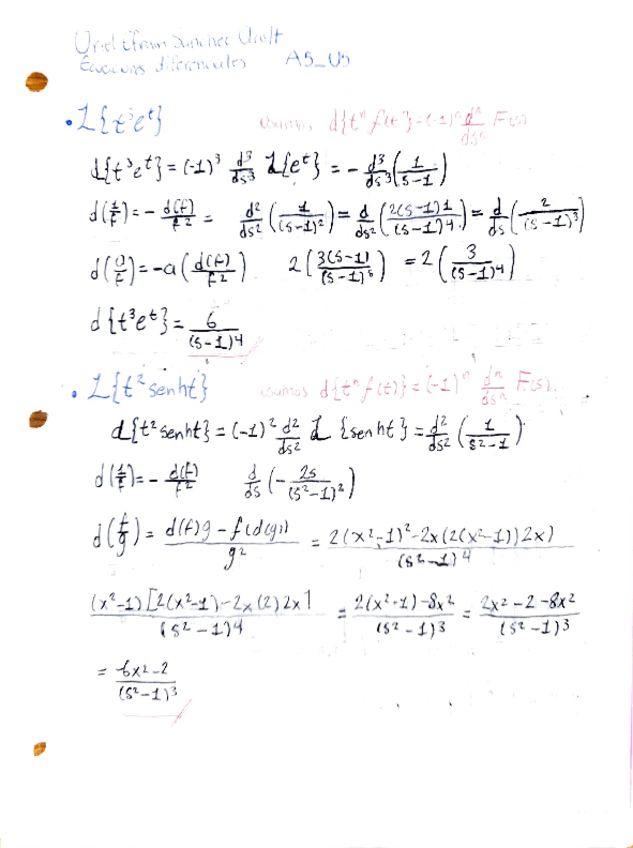 Uriel Efrain Sanchez
Ecuaciones diferenciales A5_U5
• L{t³e^t} usamos d{tⁿ f(t)} = (-1)ⁿ dⁿ/dsⁿ F(s)
d{t³e^t} = (-1)³ d³/ds³ L{e^t} = - d³/ds³ (1/(s-1))
d(1/f) = - d(f)/f² = d²/ds² (1/(s-1)²) = d/ds² (2(s-1)1/(s-1)4) = d/ds (2/(s-1)³)
d(a/f) = -a (d(f)/f²) 2 (3(s-1)/(s-1)⁶) = 2 (3/(s-1)4)
d{t³e^t} = 6/(s-1)4
• L{t² senht} usamos d{tⁿ f(t)} = (-1)ⁿ dⁿ/dsⁿ F(s).
d{t² senht} = (-1)² d²/ds² L {senht} = d²/ds² (1/(s²-1))
d(1/f) = - d(f)/f² d/ds (- 2s/(s²-1)²)
d(f/g) = d(f)g - f(d(g))/g² = 2(x²-1)² - 2x(2(x²-1))2x)/(s²-1)4
(x²-1)[2(x²-1)-2x(2)2x]/(s²-1)4 = 2(x²-1)-8x²/(s²-1)³ = 2x²-2-8x²/(s²-1)³
= -6x²-2/(s²-1)³